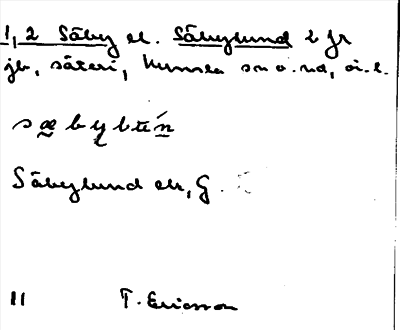 1, 2 Säby el. Säbylund 2 fr
jb, säteri, Kumla sn o. nd, Ö. l.
sæbybten
Säbylund ek, G.
11 T. Ericsson